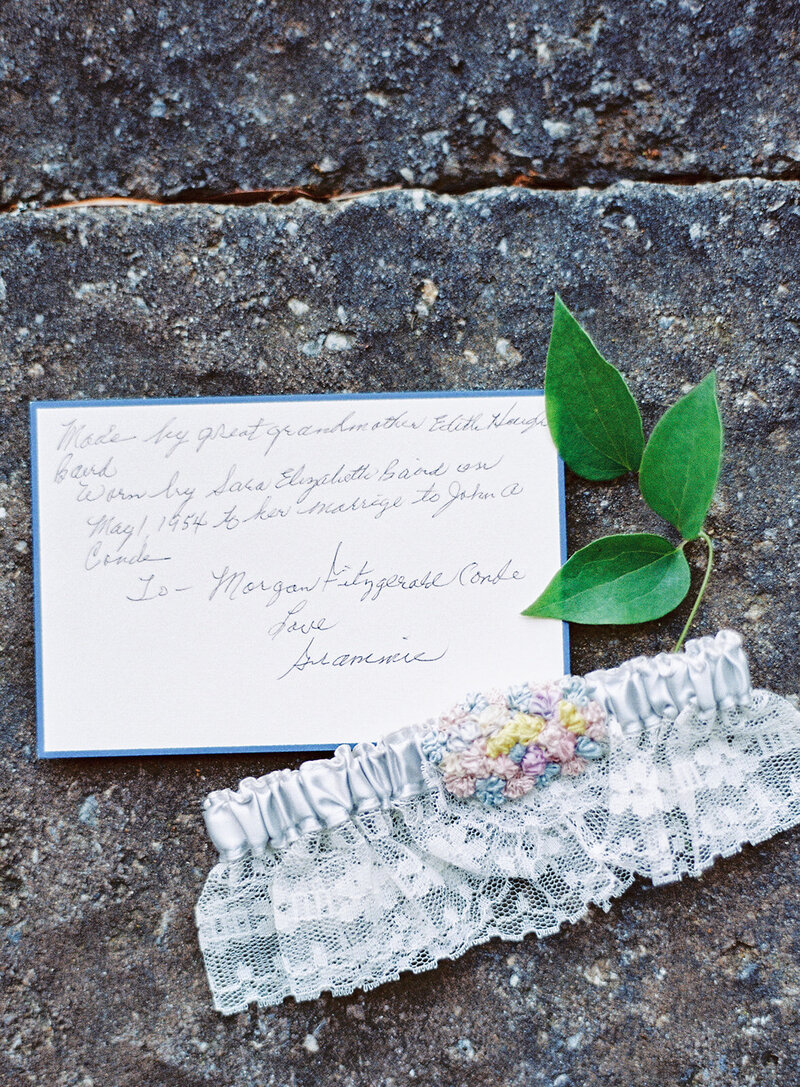 Made by great grandmother Edith Hough
Baird
Worn by Sara Elizabeth Baird on
May 1, 1954 to her marrige to John A
Conde
To - Morgan Fitzgerald Conde
Love
Grammie